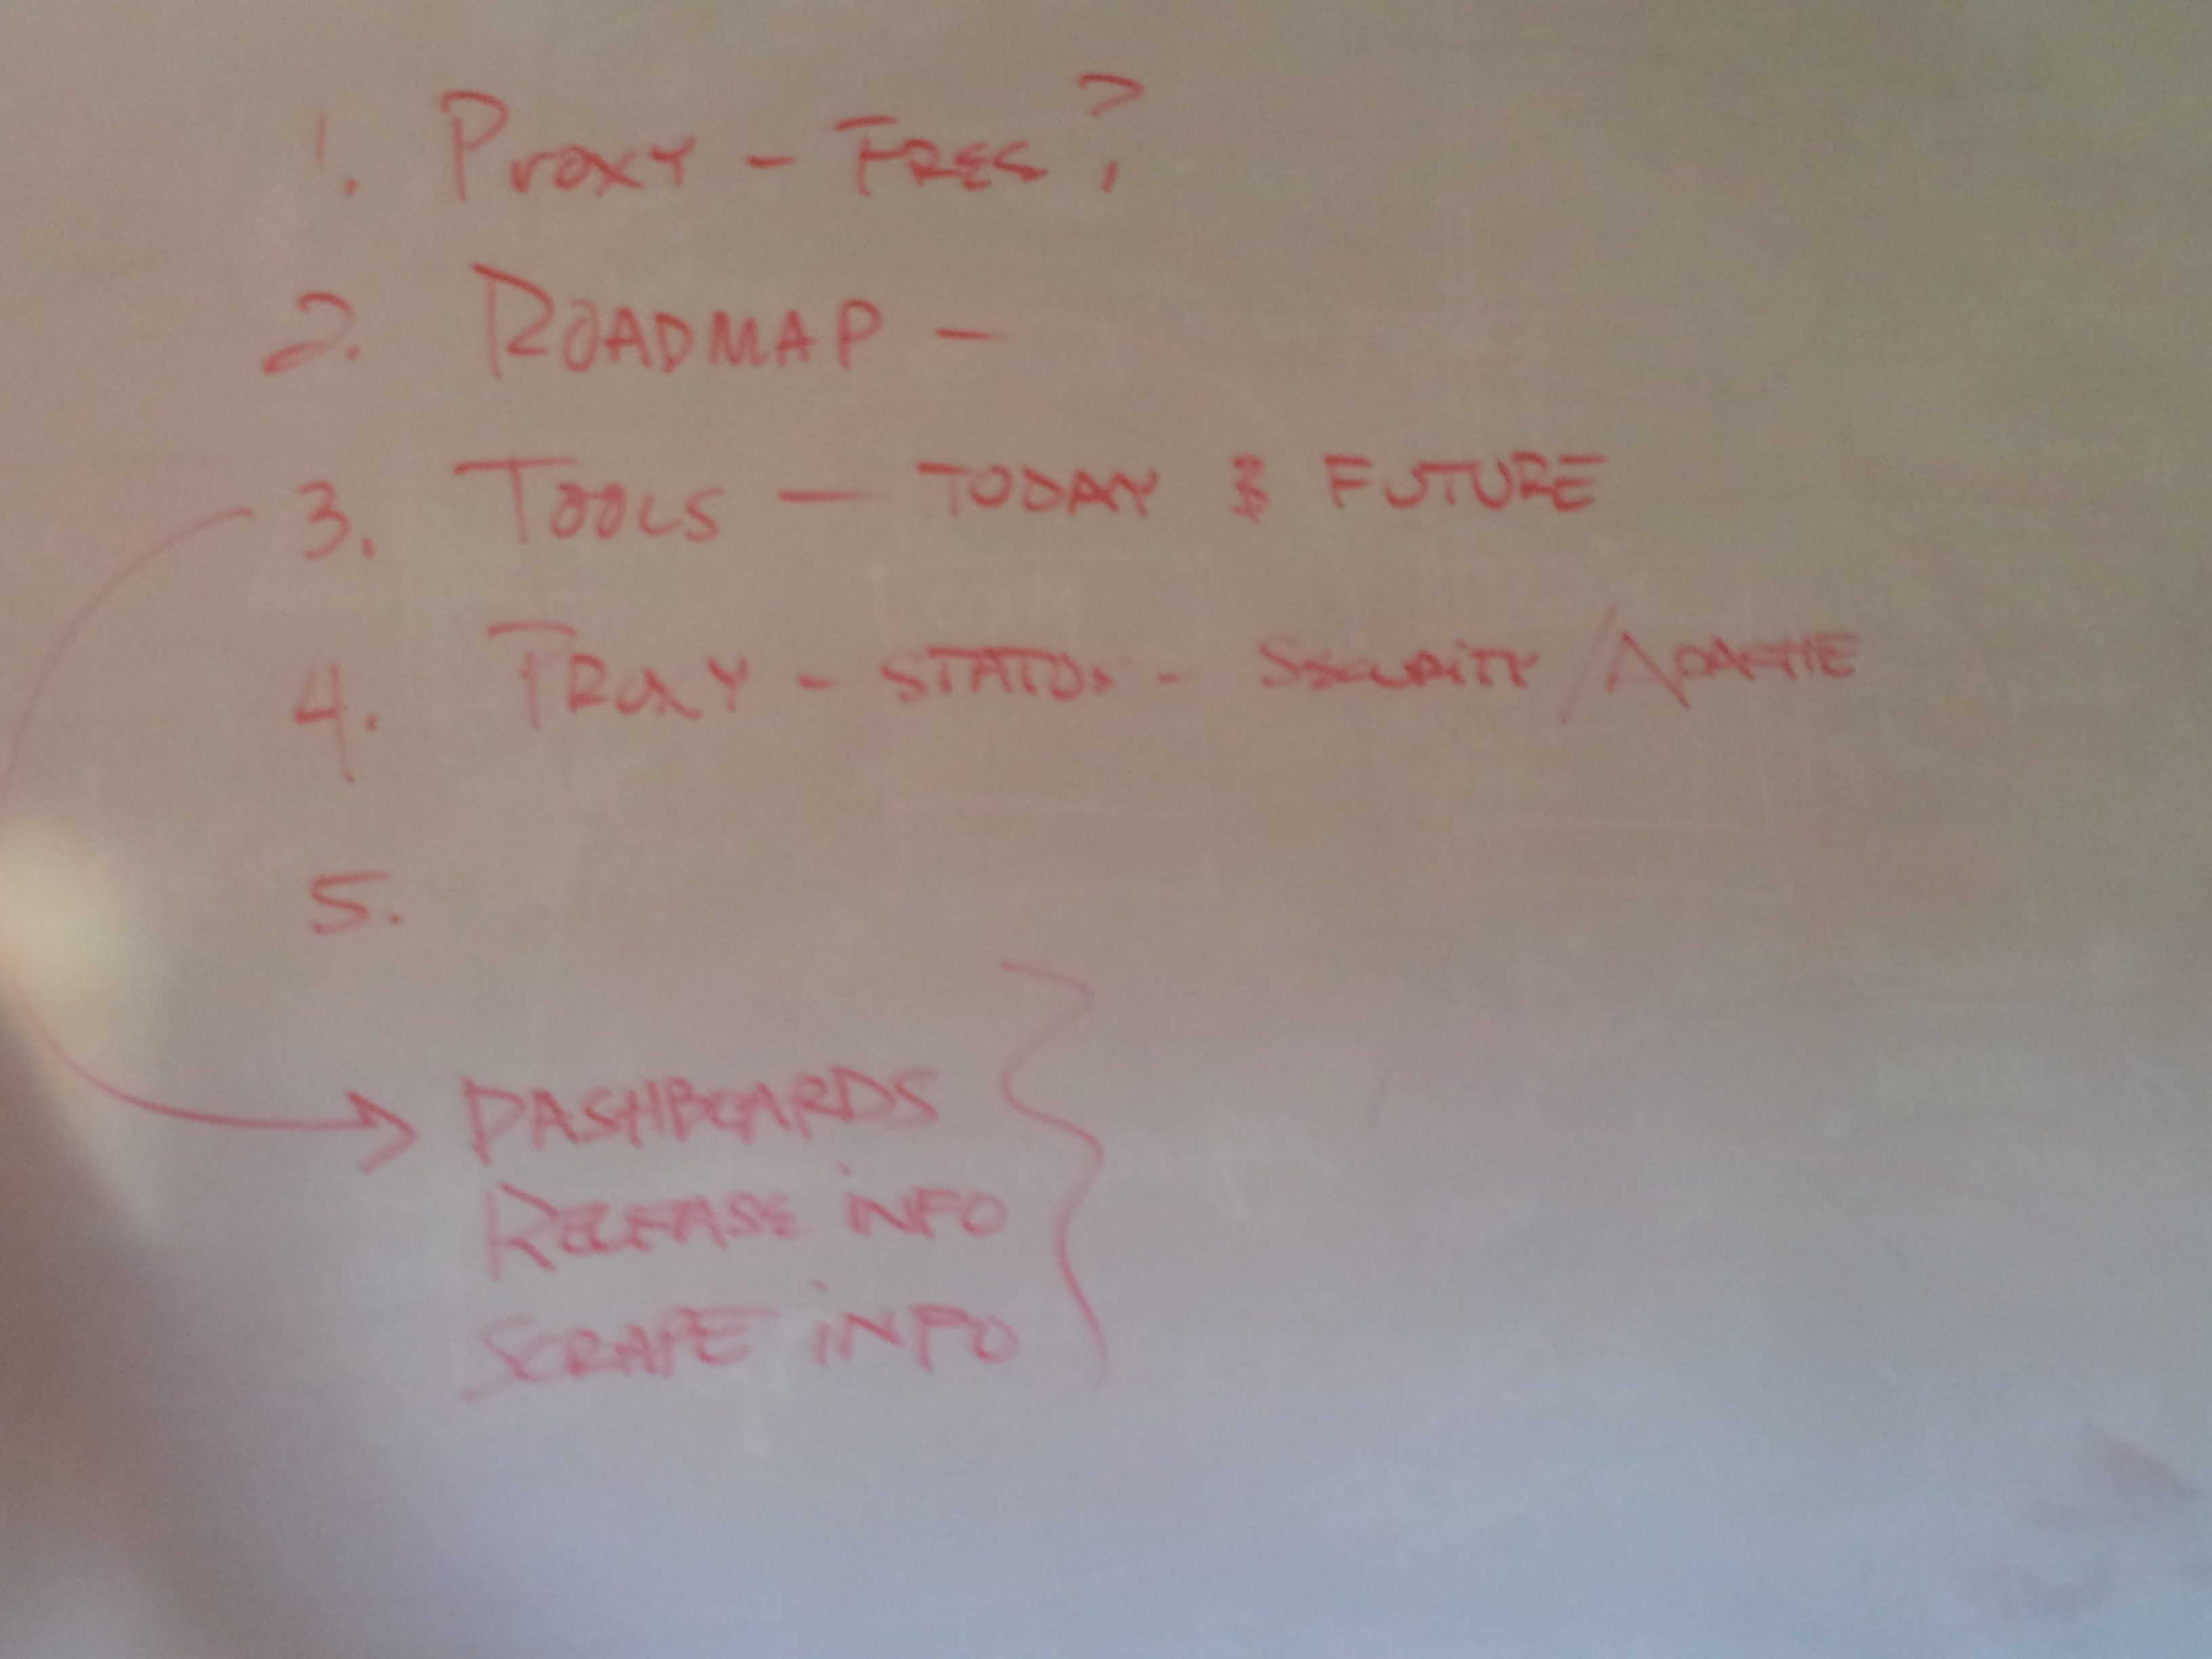 1. Proxy - FREE ?
2. ROADMAP -
3. TOOLS - TODAY & FUTURE
4. PROXY - - SECURITY / APACHE
5.
DASHBOARDS
RELEASE INFO
SCRAPE INFO